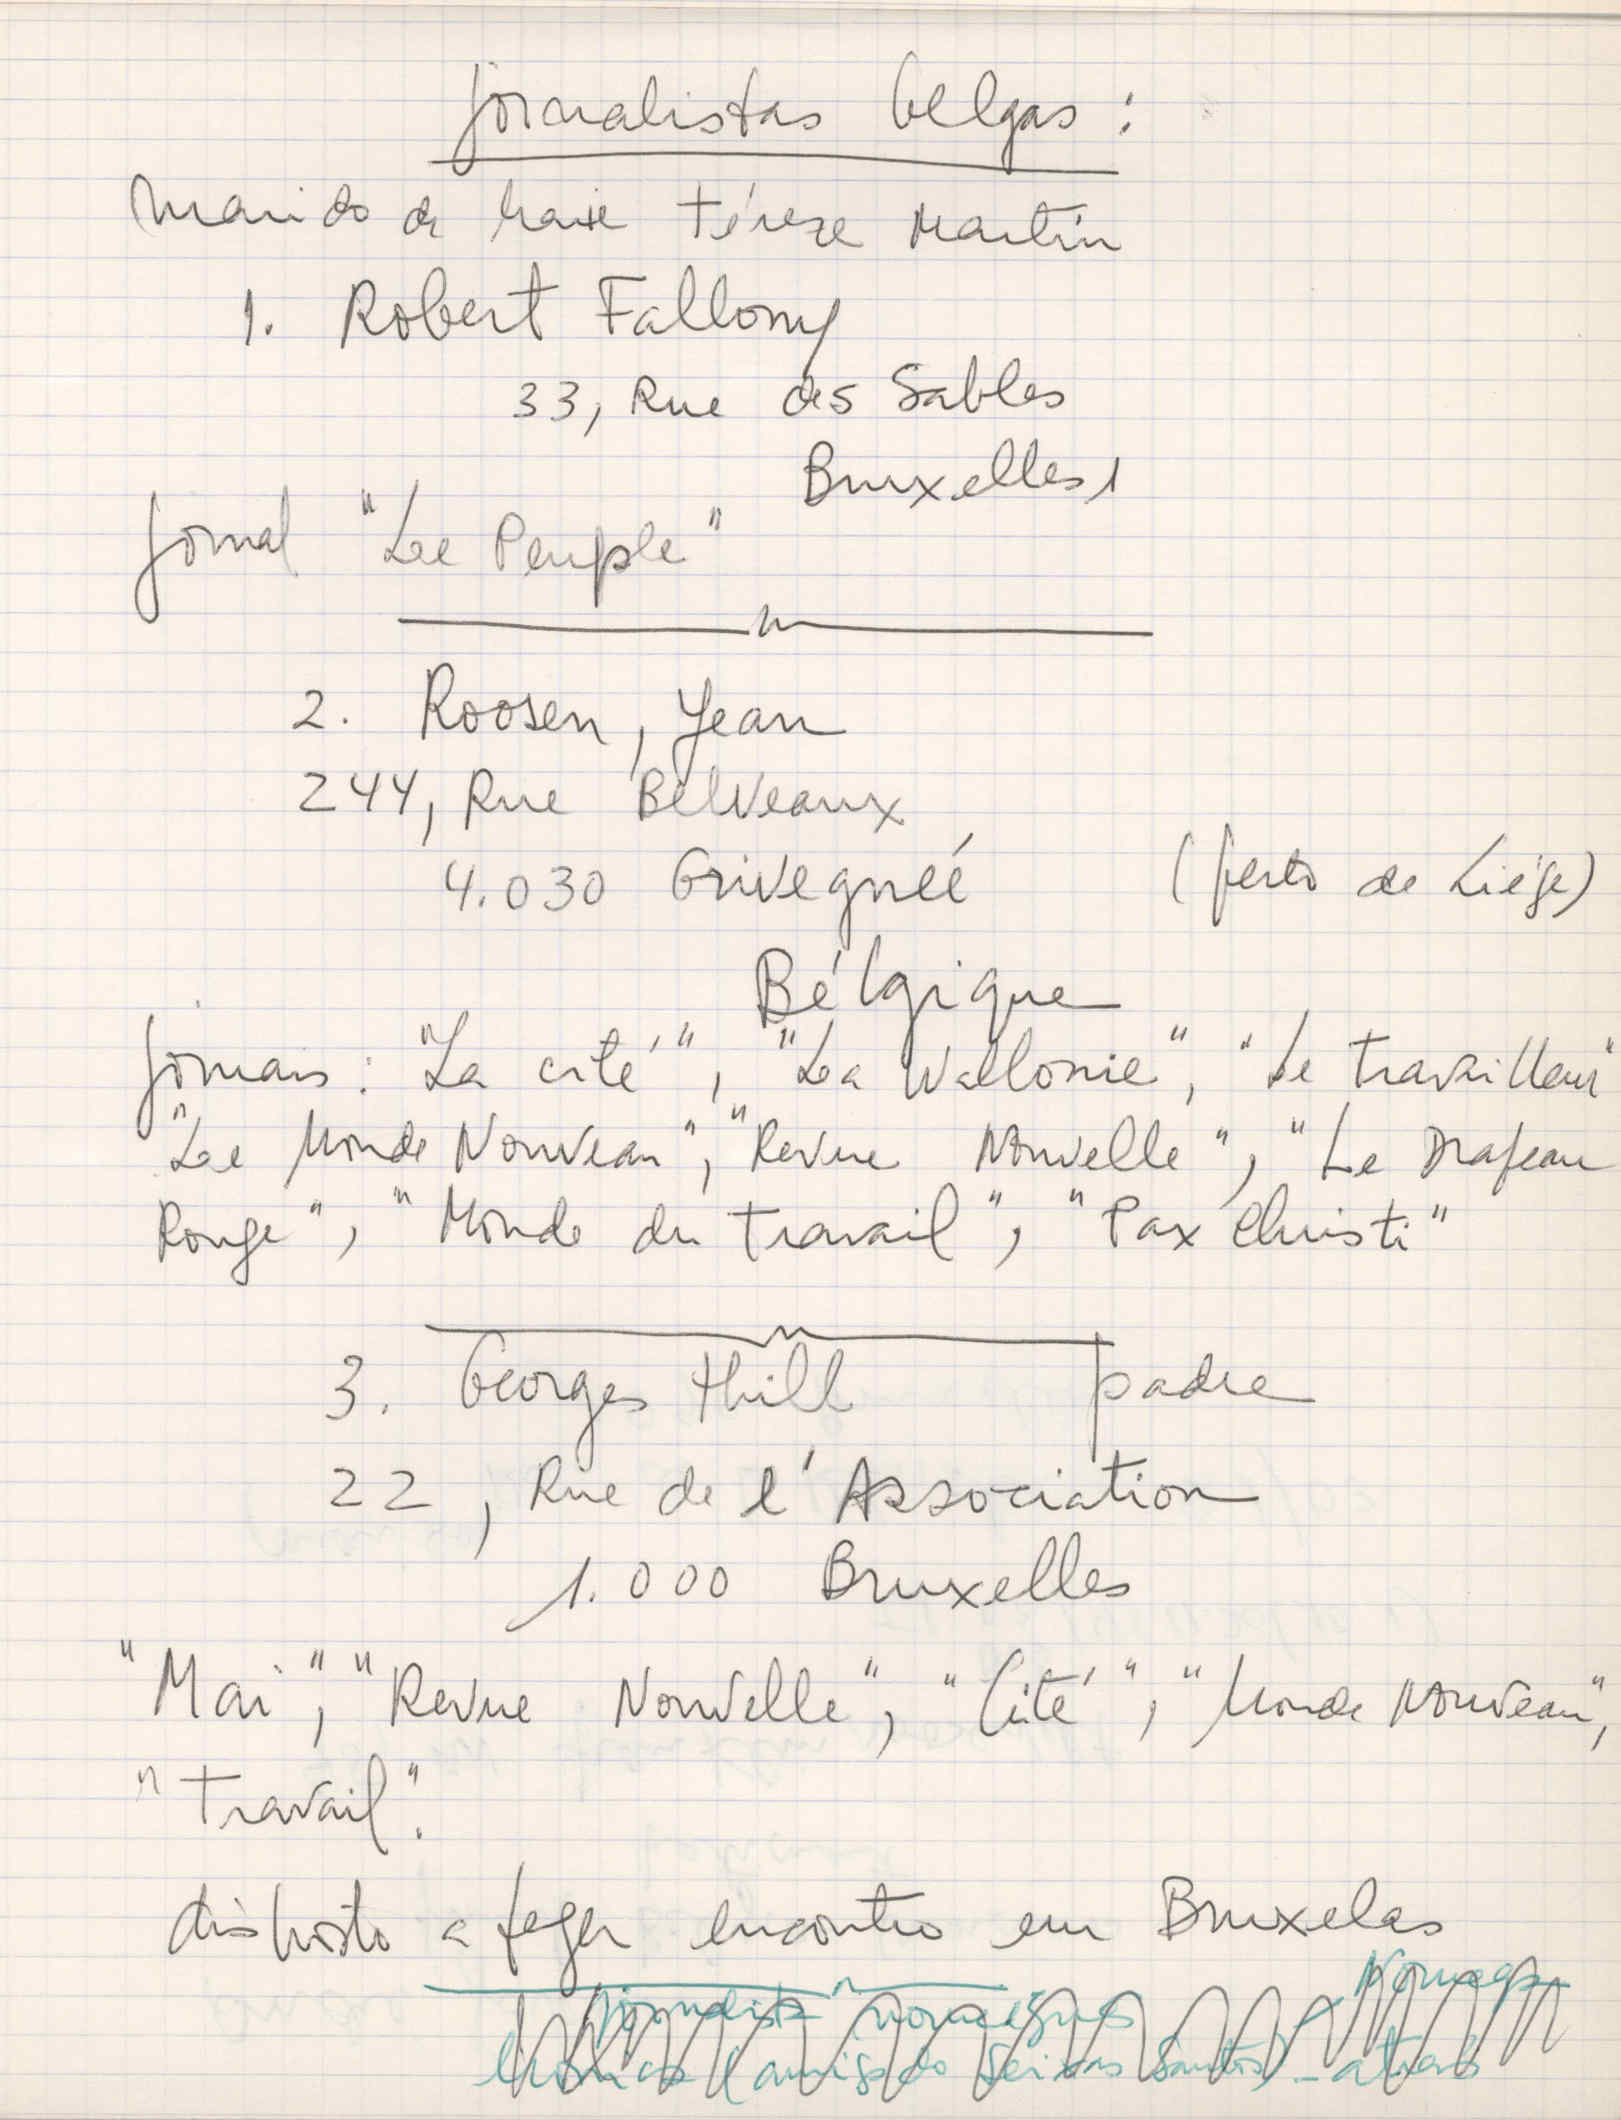 jornalistas belgas:
marido de Marie Téreze Martin
1. Robert Fallony
33, Rue des Sables
Bruxelles 1
jornal "Le Peuple"
2. Roosen, Jean
244, Rue Belveaux
4.030 Grivegnéé (perto de Liége)
Bélgique
jornais: "La cité", "La Wallonie", "Le travailleur"
"Le Monde Nouveau", "Revue Nouvelle", "Le Drapeau
Rouge", "Monde du travail", "Pax Christi"
3. Georges Thill padre
22, Rue de l'Association
1.000 Bruxelles
"Mai", "Revue Nouvelle", "Cité", "Monde Nouveau",
"Travail".
disposto a fazer encontro em Bruxelas
Noruega
jornalista norueguesa
Mónica (amiga do Seixas Santos) - através